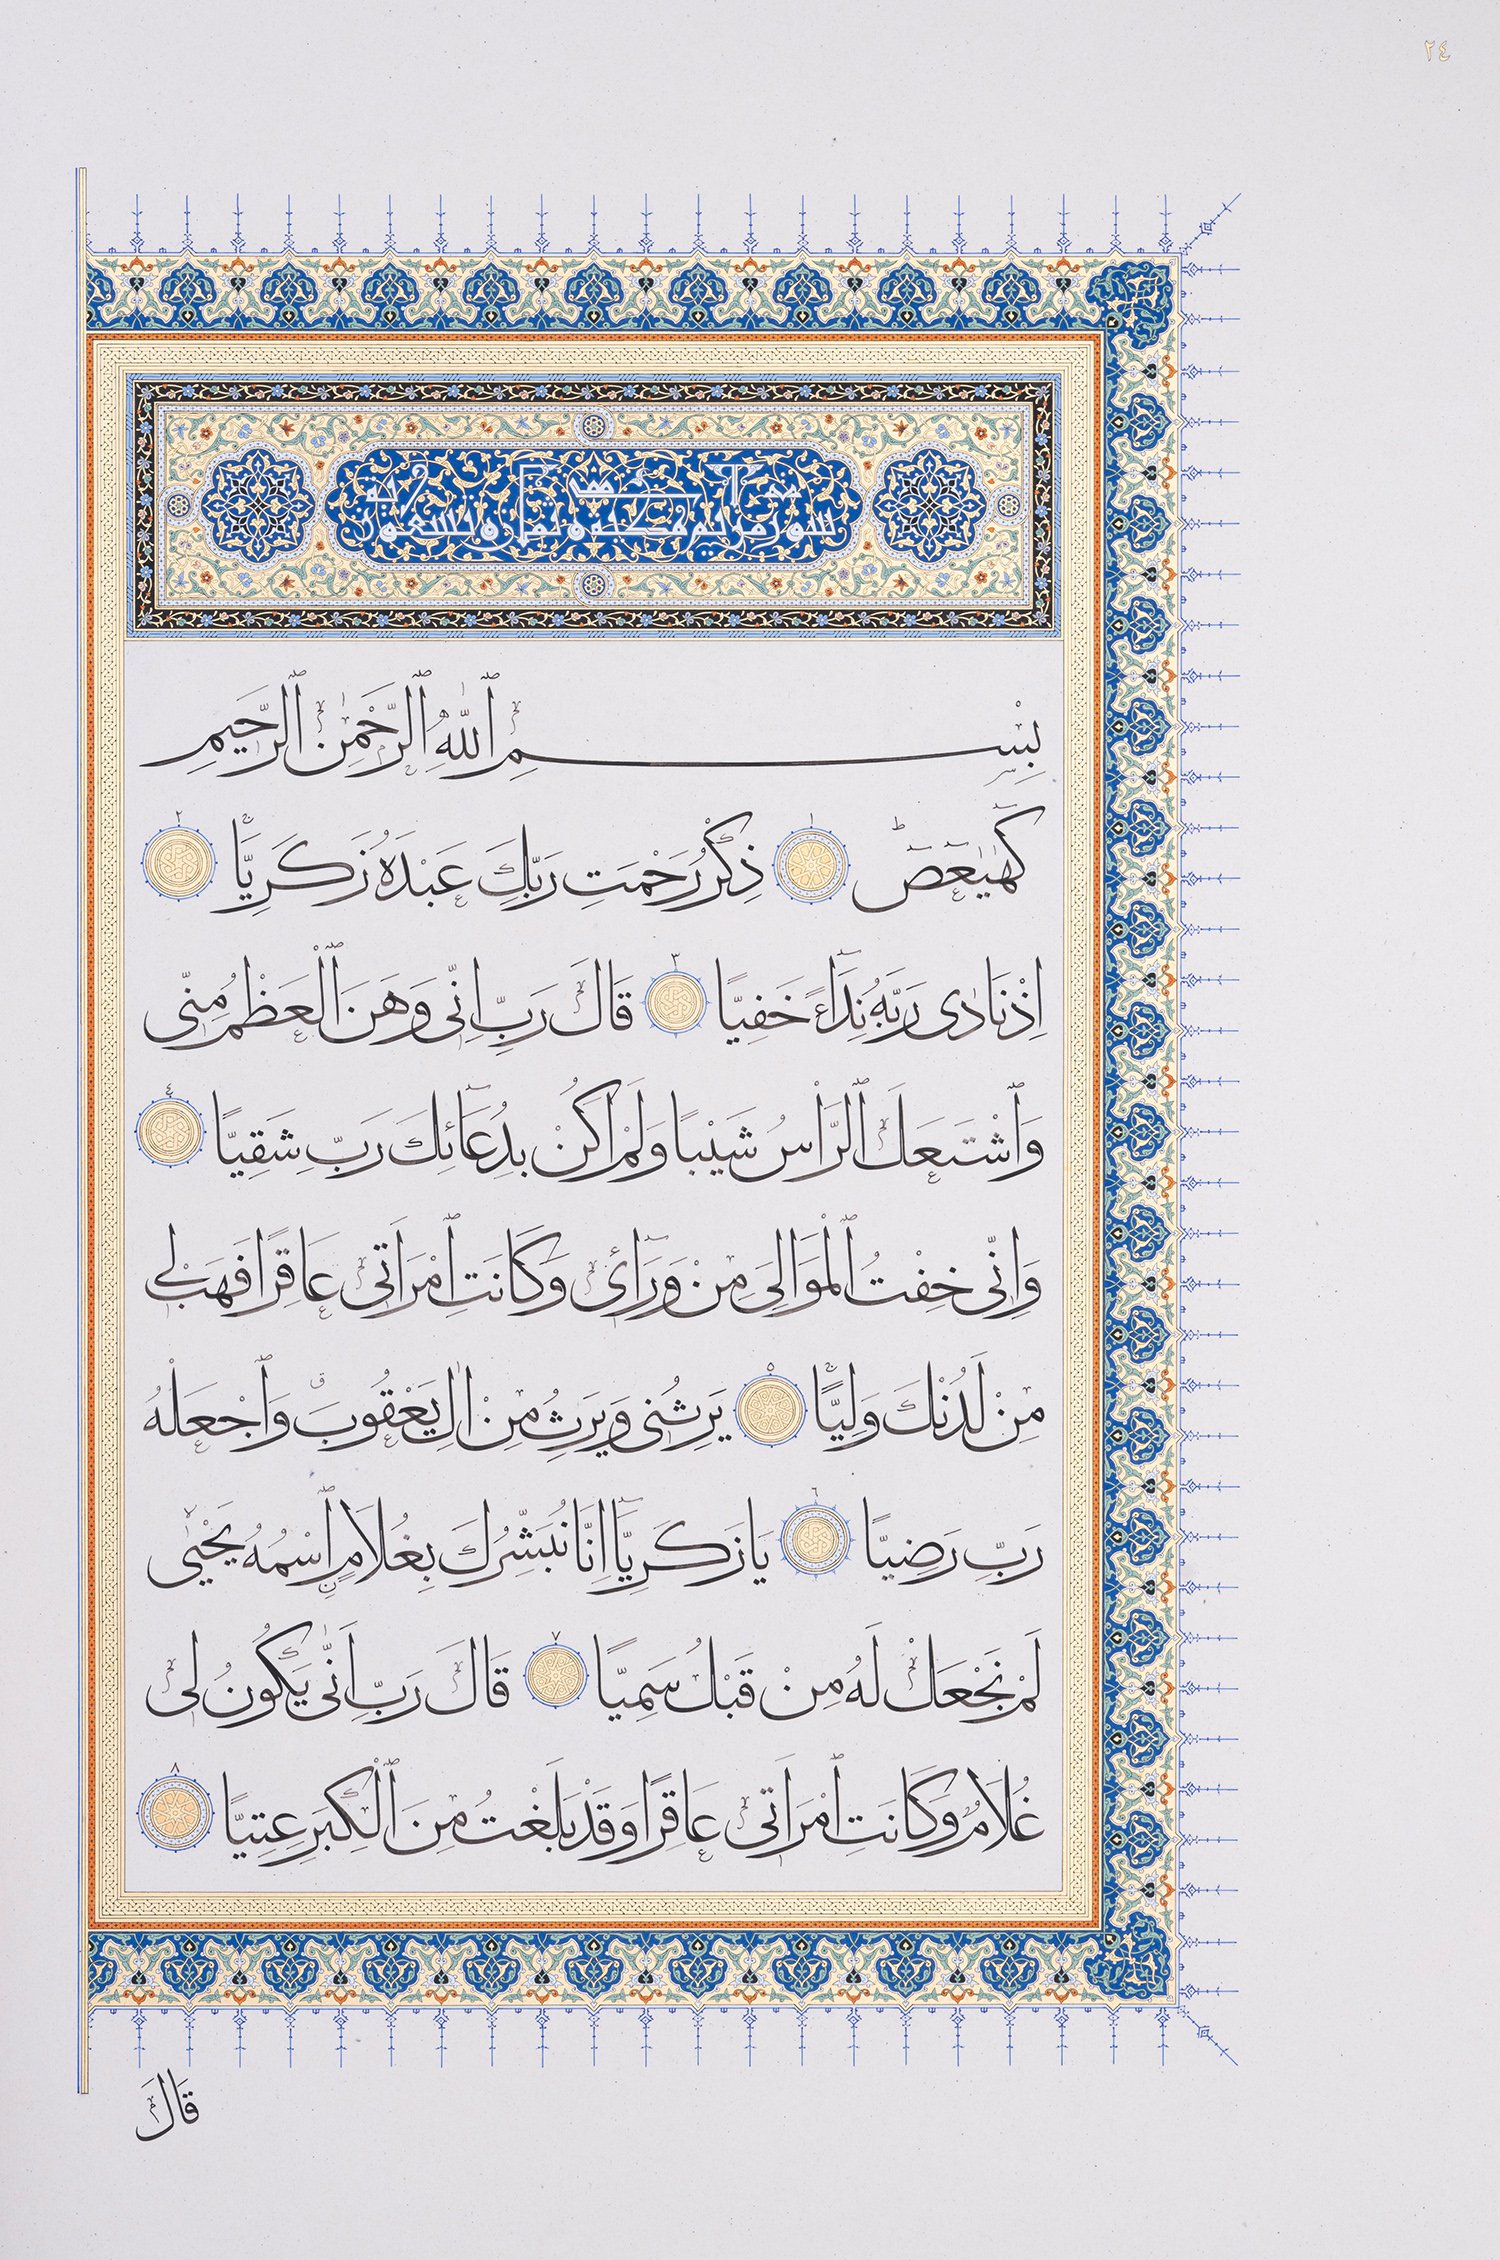 ٢٤
سورة مريم مكية ثمان وتسعون آية
بِسْمِ ٱللّٰهِ ٱلرَّحْمٰنِ ٱلرَّحِيمِ
كٓهٰيٰعٓصٓ ١ ذِكْرُ رَحْمَتِ رَبِّكَ عَبْدَهُ زَكَرِيَّا ٢
اِذْ نَادٰى رَبَّهُ نِدَٓاءً خَفِيًّا ٣ قَالَ رَبِّ اِنّٖى وَهَنَ ٱلْعَظْمُ مِنّٖى
وَٱشْتَعَلَ ٱلرَّاْسُ شَيْبًا وَلَمْ اَكُنْ بِدُعَٓائِكَ رَبِّ شَقِيًّا ٤
وَاِنّٖى خِفْتُ ٱلْمَوَالِىَ مِنْ وَرَٓاءٖى وَكَانَتِ ٱمْرَاَتٖى عَاقِرًا فَهَبْ لٖى
مِنْ لَدُنْكَ وَلِيًّا ٥ يَرِثُنٖى وَيَرِثُ مِنْ اٰلِ يَعْقُوبَ وَٱجْعَلْهُ
رَبِّ رَضِيًّا ٦ يَا زَكَرِيَّٓا اِنَّا نُبَشِّرُكَ بِغُلَامٍ ٱسْمُهُ يَحْيٰى
لَمْ نَجْعَلْ لَهُ مِنْ قَبْلُ سَمِيًّا ٧ قَالَ رَبِّ اَنّٰى يَكُونُ لٖى
غُلَامٌ وَكَانَتِ ٱمْرَاَتٖى عَاقِرًا وَقَدْ بَلَغْتُ مِنَ ٱلْكِبَرِ عِتِيًّا ٨
قَالَ